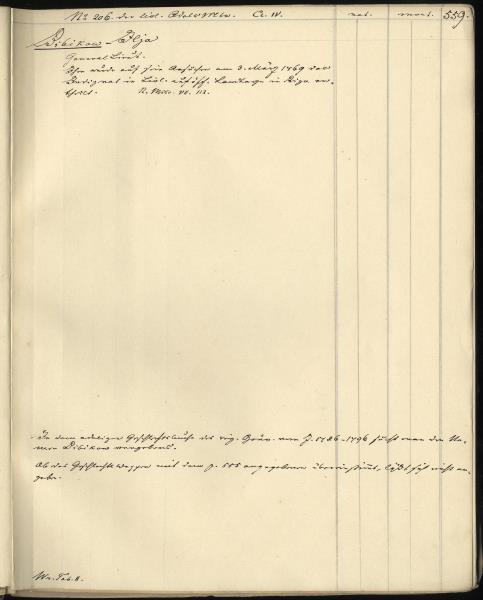 No 206. der livl. Adelsmatr. Cl. IV. nat. mort. 559.
Bibikow Ilja
General Lieut.
Ihm wurde auf sein Ansuchen am 3. März 1769 das
Indigenat in Livl. auf öff. Landtage in Riga er-
theilt. N. Misc. VII. 113.
In dem adeligen Geschlechtsbuche des rig. Gouv. vom J. 1786-1796 sucht man den Na-
men Bibikow vergebens.
Ob das Geschlechtswappen mit dem p. 555 angegebenen übereinstimmt, läßt sich nicht an-
geben.